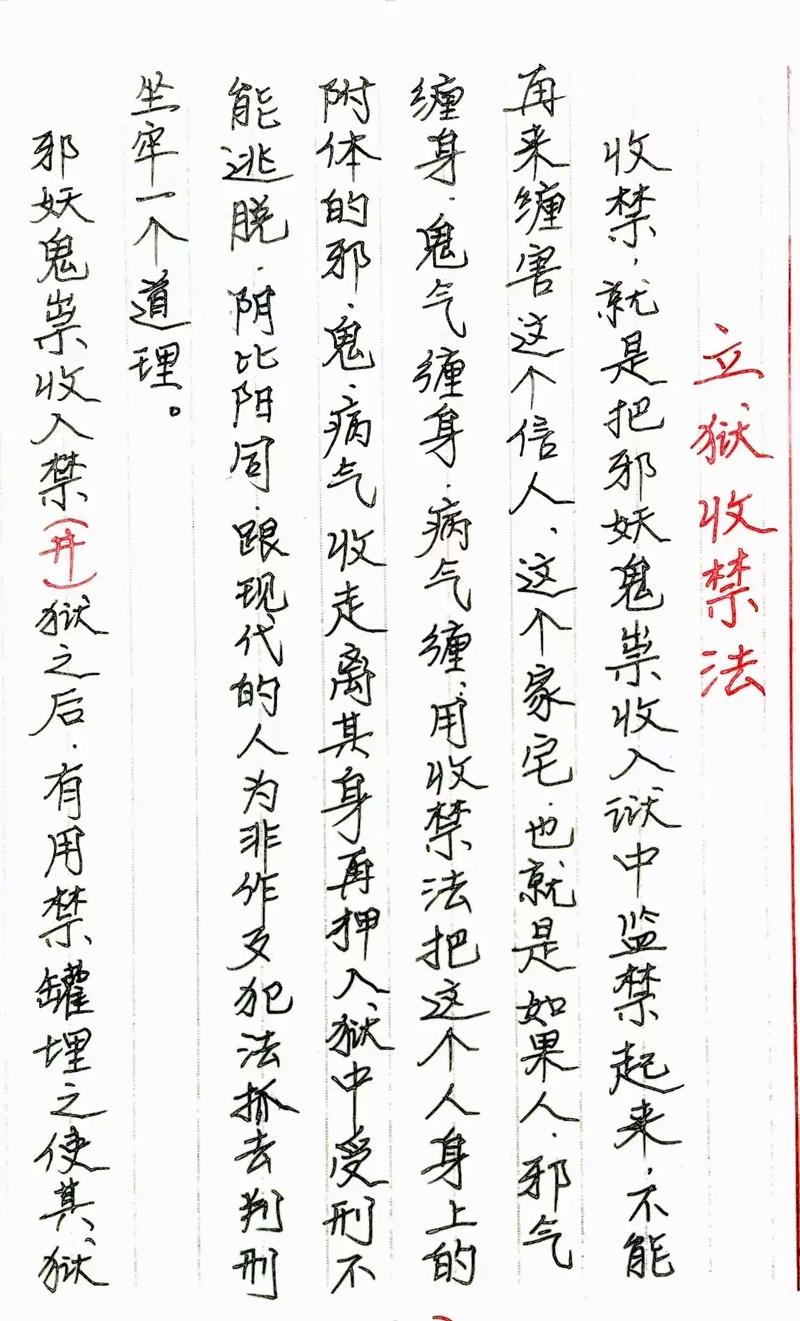 立狱收禁法
收禁，就是把邪妖鬼祟收入狱中监禁起来，不能
再来缠害这个信人、这个家宅，也就是如果人，邪气
缠身，鬼气缠身，病气缠，用收禁法把这个人身上的
附体的邪、鬼、病气收走离其身再押入狱中受刑不
能逃脱，阴比阳同，跟现代的人为非作歹犯法抓去判刑
坐牢一个道理。
邪妖鬼祟收入禁(井)狱之后，有用禁罐埋之使其、狱